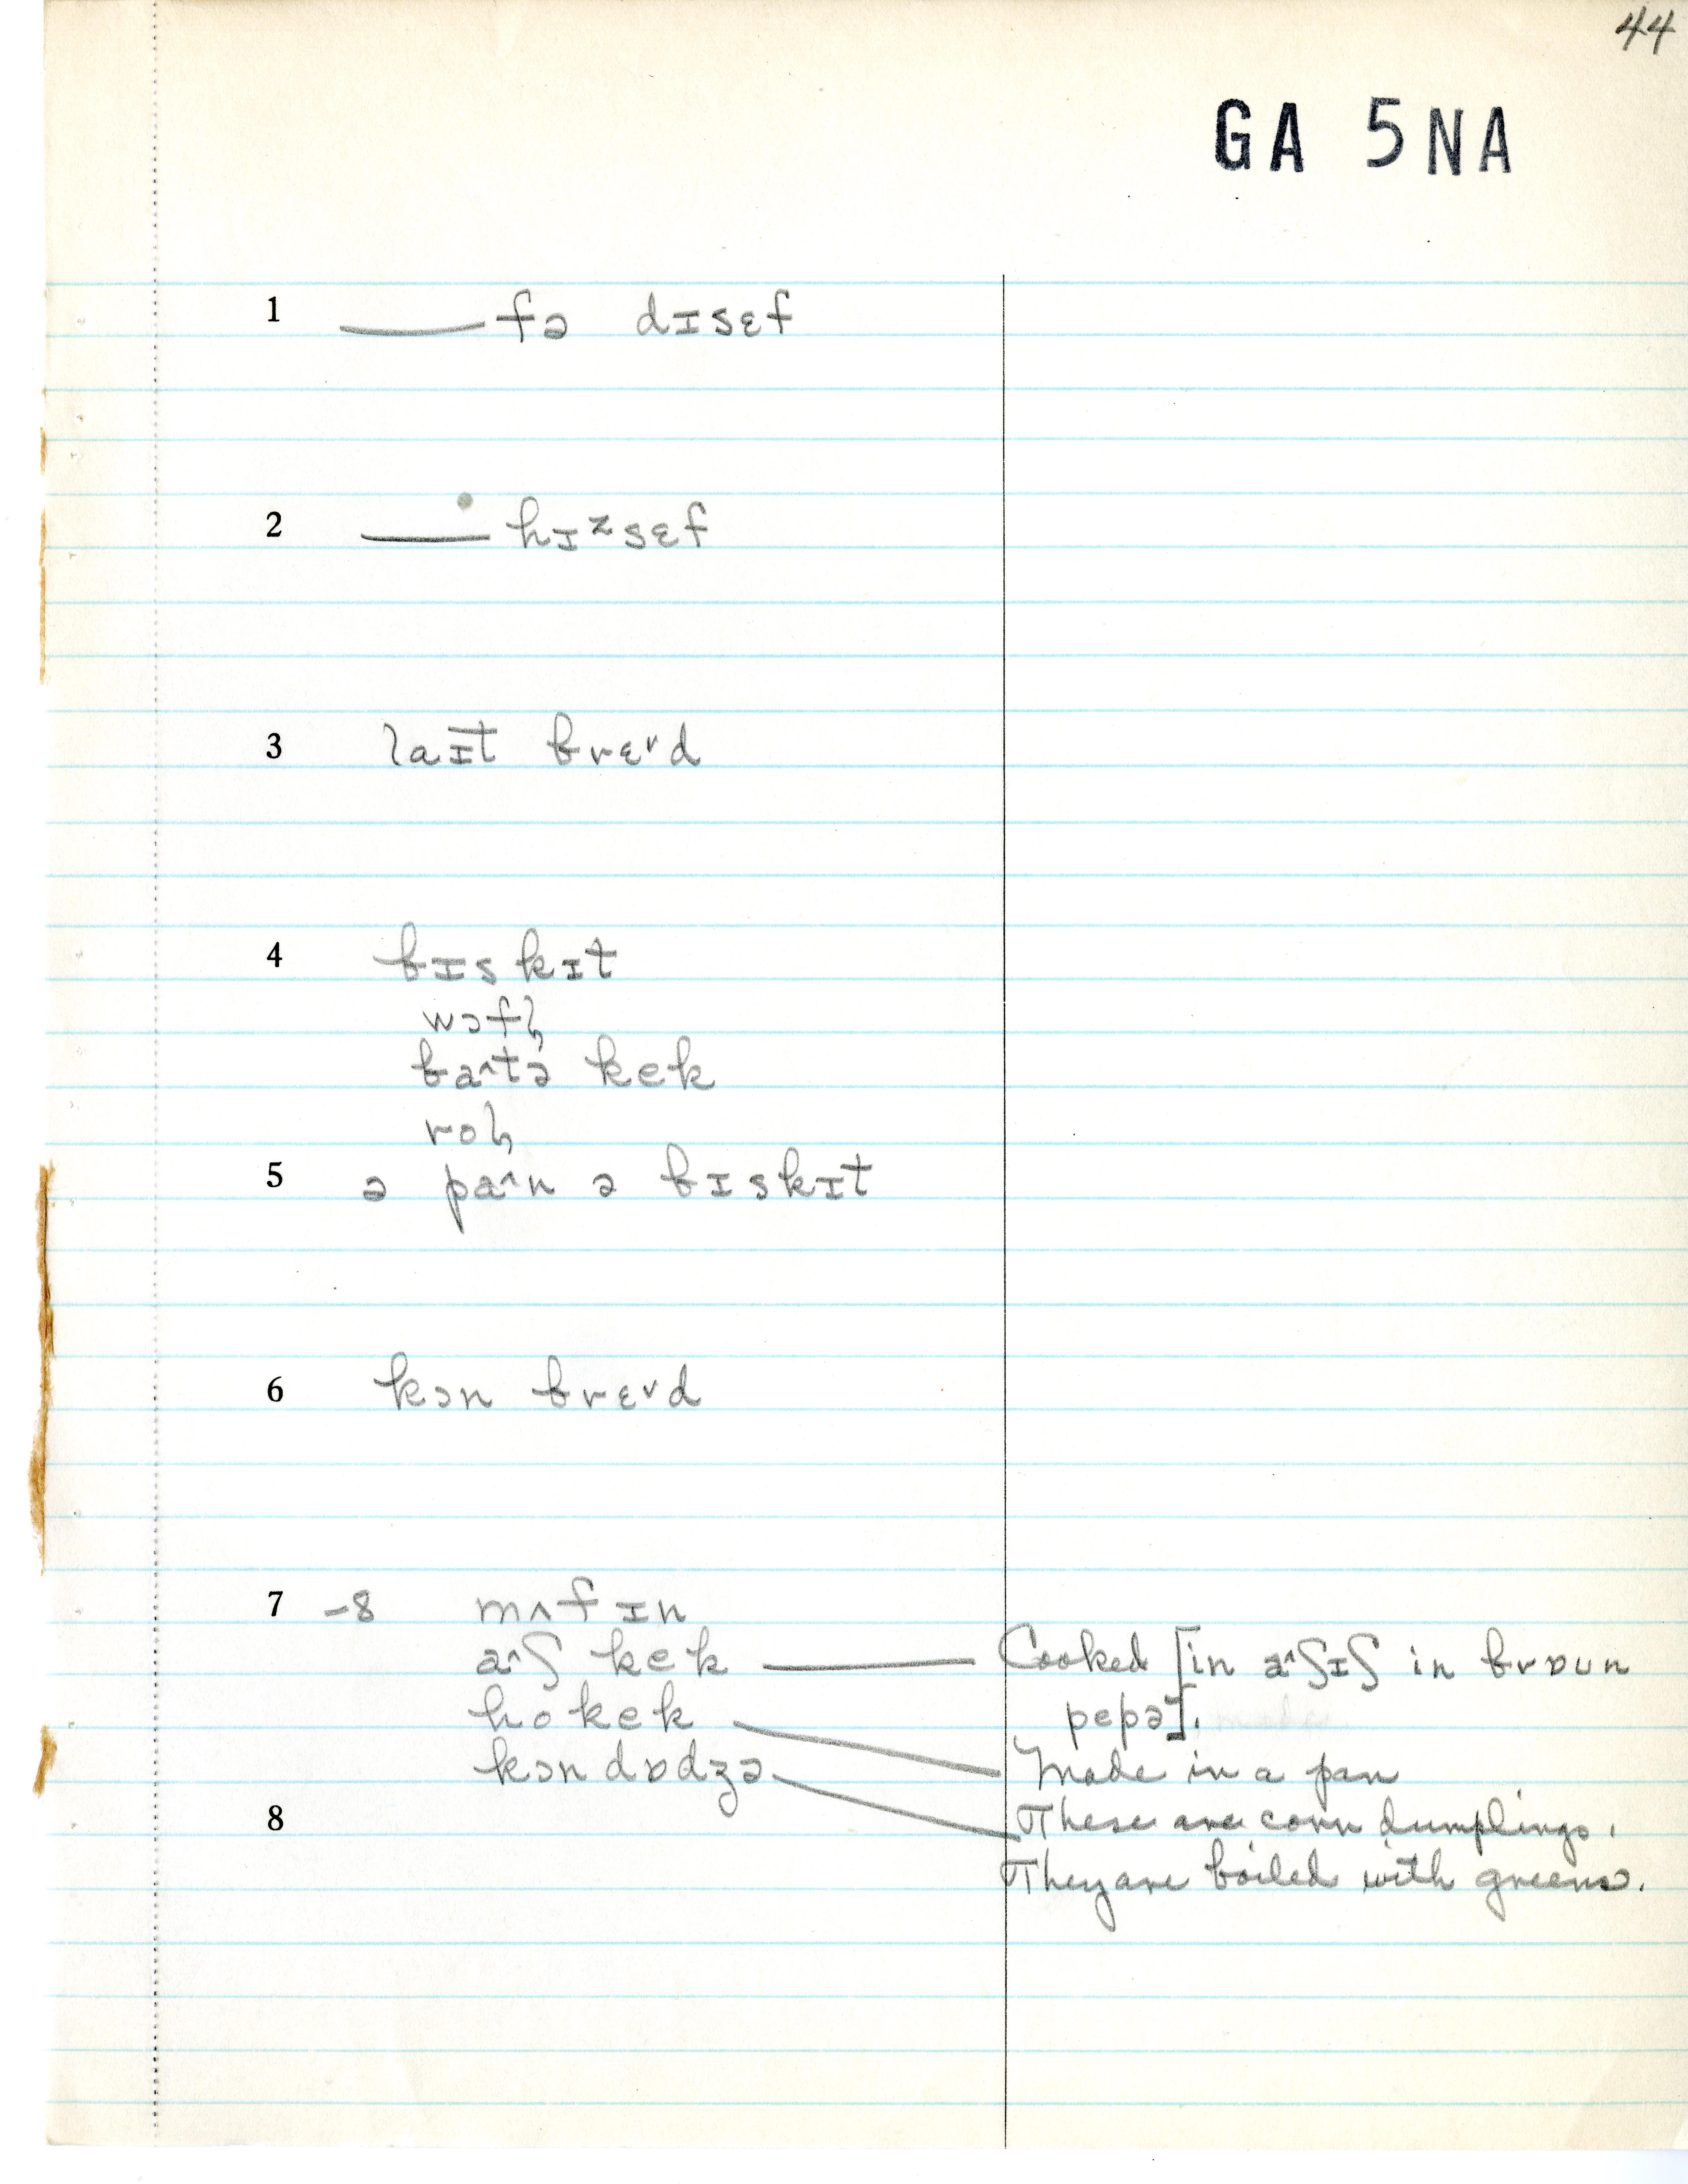 44
GA 5NA
1 ——— fə dɪsɛf
2 ——— hɪᶻsɛf
3 laɪt brɛ˅d
4 bɪskɪt
wɔfl̩
ba˄tə kek
rol̩
5 ə pa˄n ə bɪskɪt
6 kɔn brɛ˅d
7 -8 mʌfɪn
a˄ʃ kek ——— Cooked [in a˄ʃɪʃ in brɒun
hokek pepə].
kɔndɒdʒə Made in a pan
8 These are corn dumplings.
They are boiled with greens.